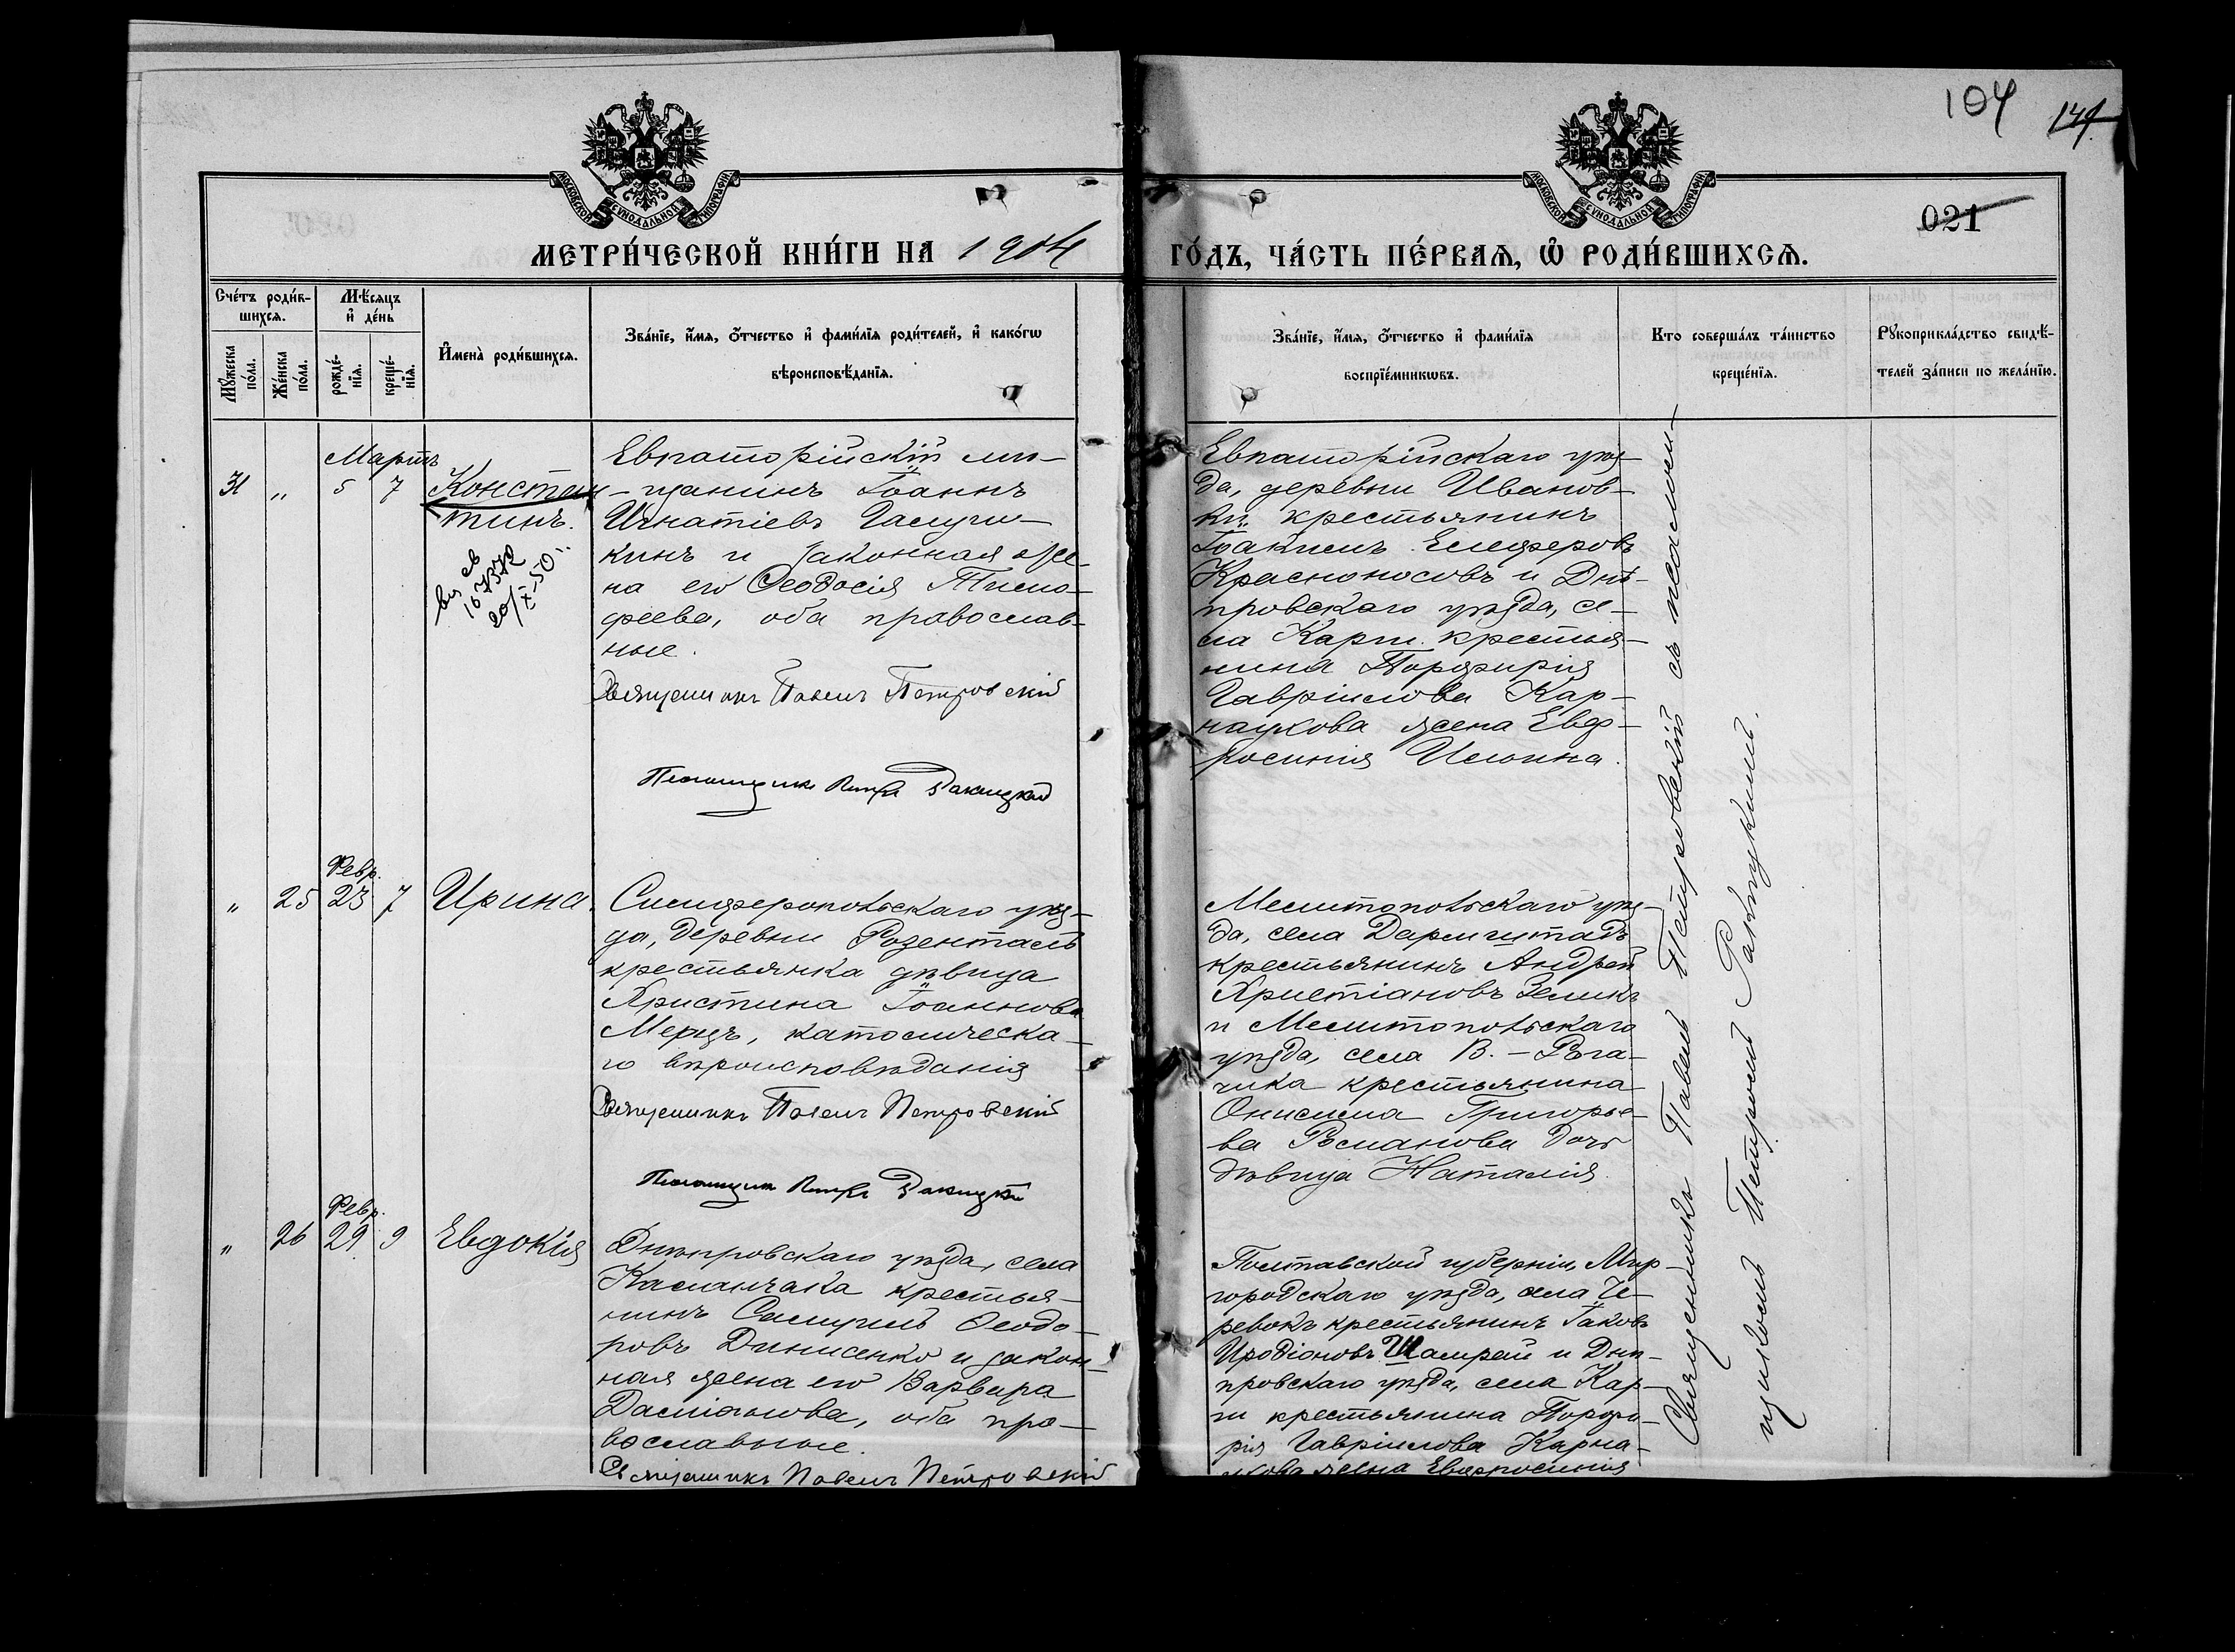 104 144
021
МОСКОВСКОЙ СѴНОДАЛЬНОЙ ТИПОГРАФІИ
МОСКОВСКОЙ СѴНОДАЛЬНОЙ ТИПОГРАФІИ
МЕТРИ́ЧЕСКОЙ КНИ́ГИ НА 1904 ГО́ДЪ, ЧА́СТЬ ПЕ́РВАѦ, Ѡ҆ РОДИ́ВШИХСѦ.
Сче́тъ роди́в-
шихсѧ.
Мꙋ́жеска по́ла.
Же́нска по́ла.
Мѣ́сѧцъ и҆ де́нь
рожде́-нїѧ.
креще́-нїѧ.
И҆мена̀ роди́вшихсѧ.
Зва́нїе, и҆́мѧ, ѻ҆́тчество и҆ фами́лїѧ роди́телей, и҆ како́гѡ
вѣроисповѣ́данїѧ.
Зва́нїе, и҆́мѧ, ѻ҆́тчество и҆ фами́лїѧ
воспрїе́мникѡвъ.
Кто соверша́лъ та́инство
креще́нїѧ.
Рꙋкоприкла́дство свидѣ́-
телей за́писи по жела́нїю.
Мартъ
31 " 5 7
Констан-
тинъ.
св
167372
20/X-50
Евпаторійскій мѣ-
щанинъ Іоаннъ
Игнатіевъ Галуш-
кинъ и законная же-
на его Ѳеодосія Тимо-
феева, оба православ-
ные.
Священникъ Павелъ Петровскій
Псаломщикъ Петръ Ракицкій
Евпаторійскаго уѣз-
да, деревни Иванов-
ки крестьянинъ
Іоакимъ Елеферовъ
Красноносовъ и Днѣ-
провскаго уѣзда, се-
ла Карги крестья-
нина Порфирія
Гавріилова Кар-
наухова жена Евф-
росинія Ильина.
Февр.
" 25 23 7
Ирина.
Симферопольскаго уѣз-
да, деревни Розенталь
крестьянка дѣвица
Христина Іоаннова
Мерцъ, католическа-
го вѣроисповѣданія
Священникъ Павелъ Петровскій
Псаломщикъ Петръ Ракицкій
Мелитопольскаго уѣз-
да, села Дармштадъ
крестьянинъ Андрей
Христіановъ Зеликъ
и Мелитопольскаго
уѣзда, села В.-Рога-
чика крестьянина
Онисима Григорье-
ва Романова дочь
дѣвица Наталія.
Февр.
" 26 29 9
Евдокія
Днѣпровскаго уѣзда, села
Каланчака крестья-
нинъ Самуилъ Ѳеодо-
ровъ Динисенко и закон-
ная жена его Варвара
Даміанова, оба пра-
вославные.
Священникъ Павелъ Петровскій
Полтавской губерніи, Мир-
городскаго уѣзда, села Че-
ревокъ крестьянинъ Іаковъ
Иродіоновъ Шамрай и Днѣ-
провскаго уѣзда, села Кар-
ги крестьянина Порфи-
рія Гавріилова Карна-
ухова жена Евфросинія
Священникъ Павелъ Петровскій съ псалом-
щикомъ Петромъ Ракицкимъ.